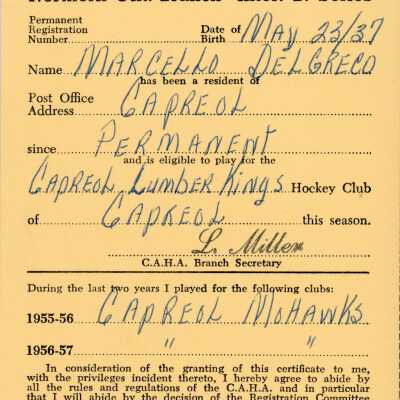 Permanent
Registration
Number Date of
Birth May 23/37
Name MARCELLO DELGRECO
has been a resident of
Post Office
Address CAPREOL
since PERMANENT
and is eligible to play for the
CAPREOL LUMBER KINGS Hockey Club
of CAPREOL this season.
L. Miller
C.A.H.A. Branch Secretary
During the last two years I played for the following clubs:
1955-56 CAPREOL MOHAWKS
1956-57 " "
In consideration of the granting of this certificate to me,
with the privileges incident thereto, I hereby agree to abide by
all the rules and regulations of the C.A.H.A. and in particular
that I will abide by the decision of the Registration Committee